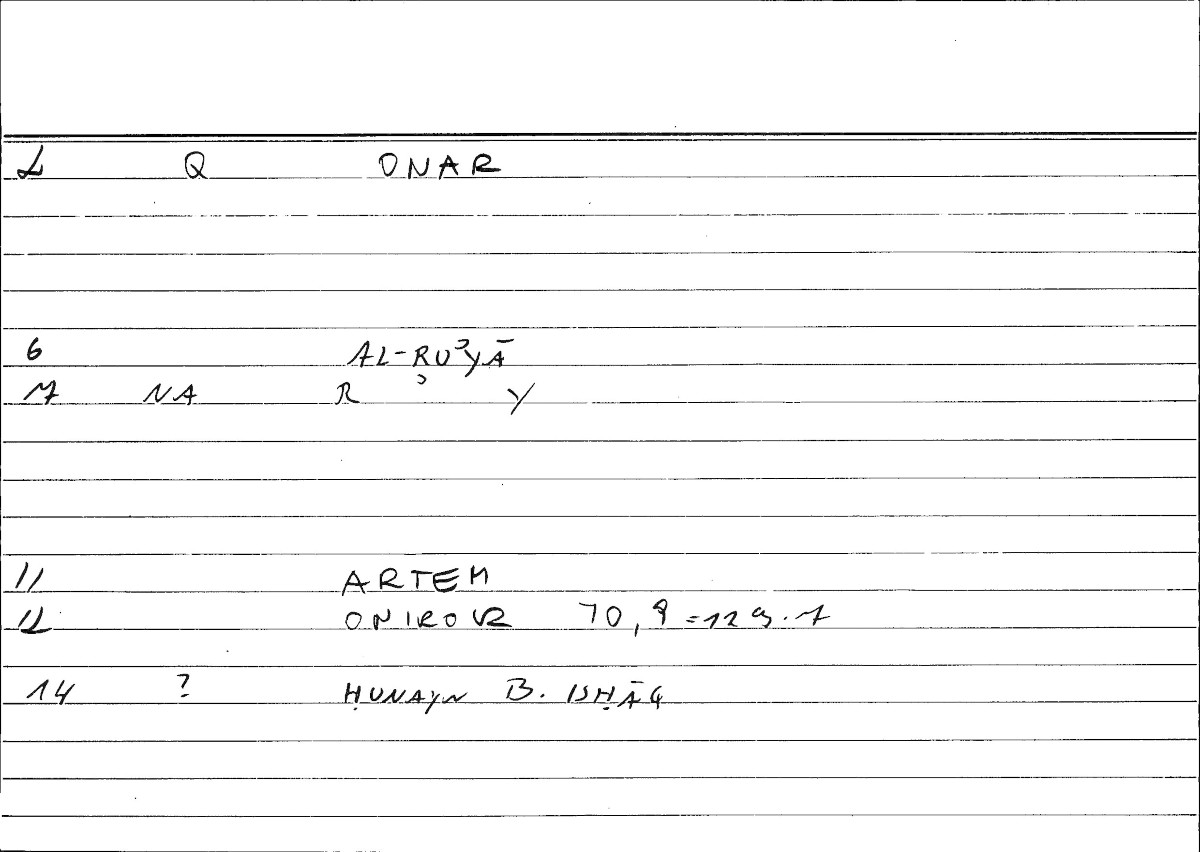 2 Q ONAR
6 AL-RUʾYĀ
7 NA R Y
11 ARTEM
12 ONIROCR 70,8=129.7
14 ? ḤUNAYN B. ISḤĀQ